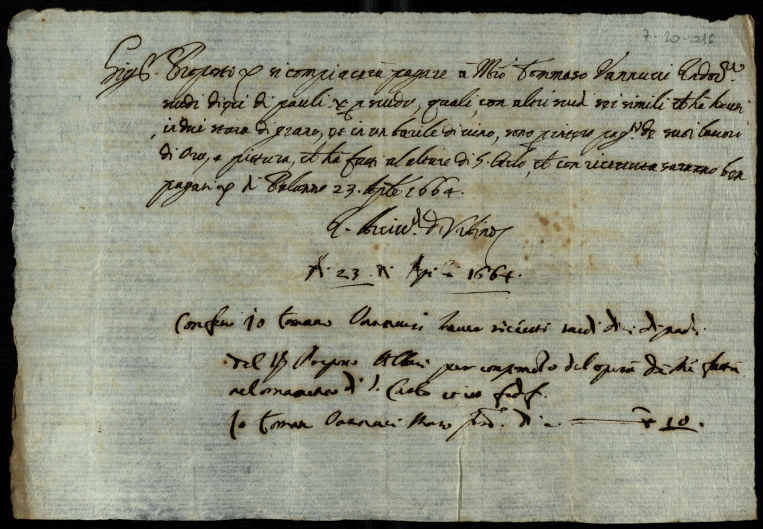 7-20-016
Sig.r Preposto si compiacerà pagare à M.ro Tommaso Vannucci Indor.re
scudi dieci di paoli x p scudo, quali, con altri scudi sei simili ch'hà havuti
in due stara di grano, et in un barile di vino, sono p intero pag.to de suoi lavori
di Oro, e pittura, ch'hà fatti al altare di S. Carlo, et con ricevuta saranno ben
pagati Di Palazzo 23. Aple 1664.
di Urbino
Di 23 di Apri 1664.
Confesso Io Tomaso Vannucci havere riceuti scudi dieci di paoli
del Sig Preposto per compimeto del opera da me fatta
nel ornamento di S. Carlo
Io Tomaso Vannucci mano D. 10.